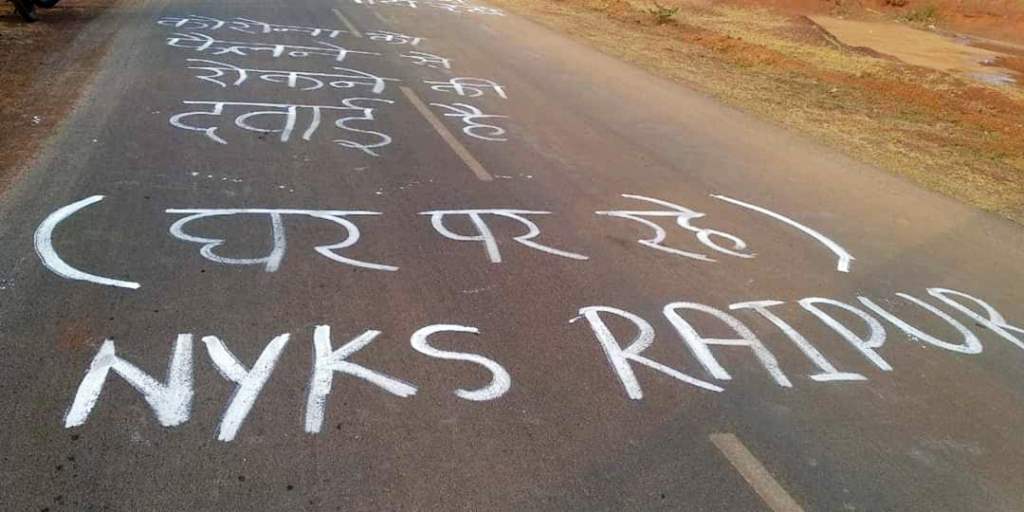 कोरोना का
फैलने से
रोकने की
दवाई है
(घर पर रहे)
NYKS RAIPUR